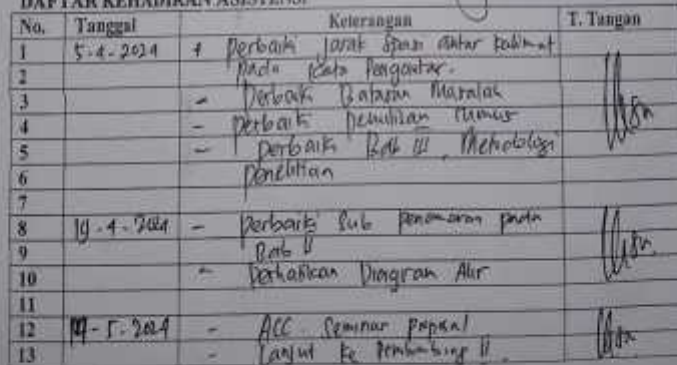 DAFTAR KEHADIRAN ASISTENSI
No. Tanggal Keterangan T. Tangan
1 5-4-2024 + Perbaiki Jarak Spasi antar kalimat
2 Pada Kata Pengantar.
3 - Perbaiki Batasan Masalah
4 - Perbaiki Penulisan rumus
5 - Perbaiki Bab III Metodologi
6 Penelitian
7
8 19-4-2024 - Perbaiki Sub Penomoran pada
9 Bab II
10 - Perhatikan Diagram Alir
11
12 -5-2024 - ACC Seminar
13 - Lanjut ke Pembimbing II.